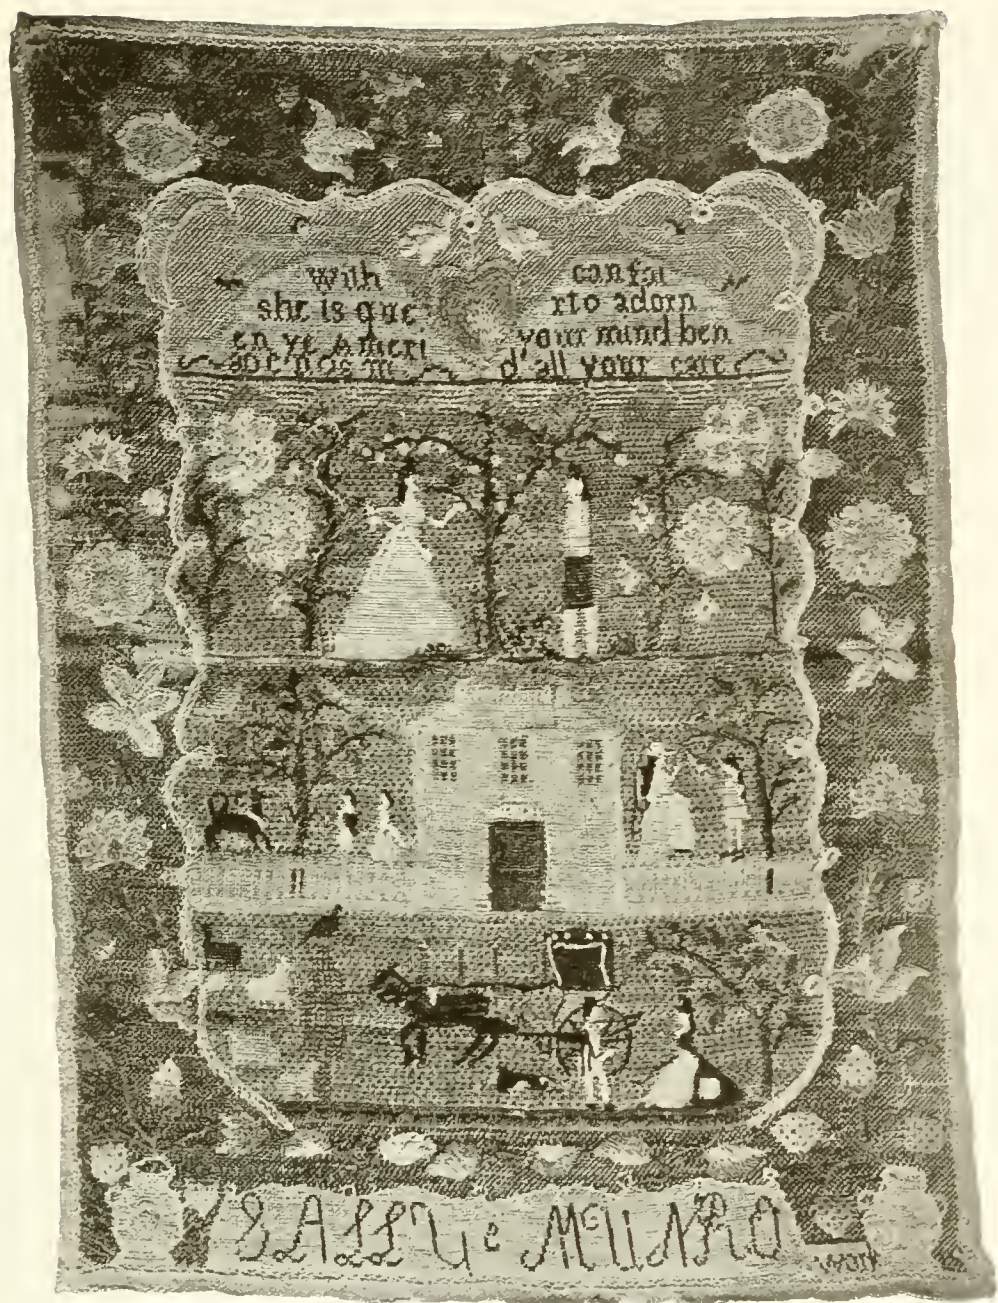 With
she is que
en ye Ameri
can fai
rto adorn
your mind ben
d'all your care
SALLY e McUNRO
work